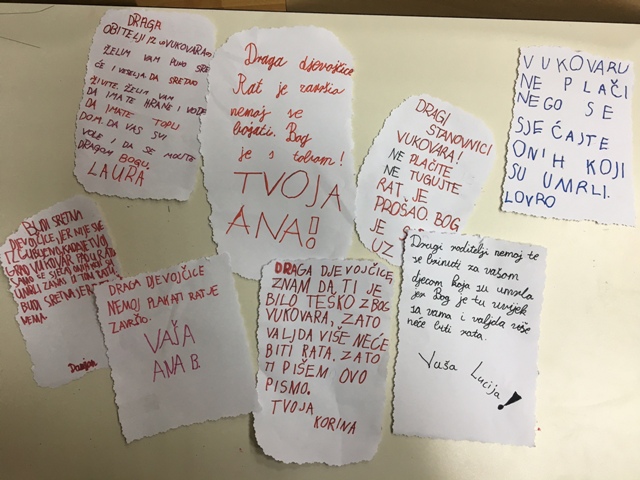 DRAGA
OBITELJI IZ VUKOVARA
ŽELIM VAM PUNO SRE
ĆE I VESELJA DA SRETNO
ŽIVITE. ŽELIM VAM
DA IMATE HRANE I VODE
DA IMATE TOPLI
DOM, DA VAS SVI
VOLE I DA SE MOLITE
DRAGOM BOGU.
LAURA
Draga djevojčice
Rat je završio
nemoj se
bojati. Bog
je s tobom!
TVOJA
ANA!
DRAGI
STANOVNICI
VUKOVARA!
NE PLAČITE
NE TUGUJTE
RAT JE
PROŠAO BOG
JE S
UZ
VUKOVARU
NE PLAČI
NEGO SE
SJEĆAJTE
ONIH KOJI
SU UMRLI.
LOVRO
BUDI SRETNA
DJEVOJČICE, JER NIJE SVE
IZGUBLJENA KNADE TVOJ
GRAD VUKOVAR
BUDI SRETNA JER
NEMA
Damjan
DRAGA DJEVOJČICE
NEMOJ PLAKATI RAT JE
ZAVRŠIO.
VAŠA
ANA B.
DRAGA DJEVOJČICE,
ZNAM DA TI JE
BILO TEŠKO ZBOG
VUKOVARA, ZATO
VALJDA VIŠE NEĆE
BITI RATA. ZATO
TI PIŠEM OVO
PISMO.
TVOJA
KORINA
Dragi roditelji nemoj te
se brinuti za vašom
djecom koja su umrla
jer Bog je tu uvijek
sa vama i valjda više
neće biti rata.
Vaša Lucija!